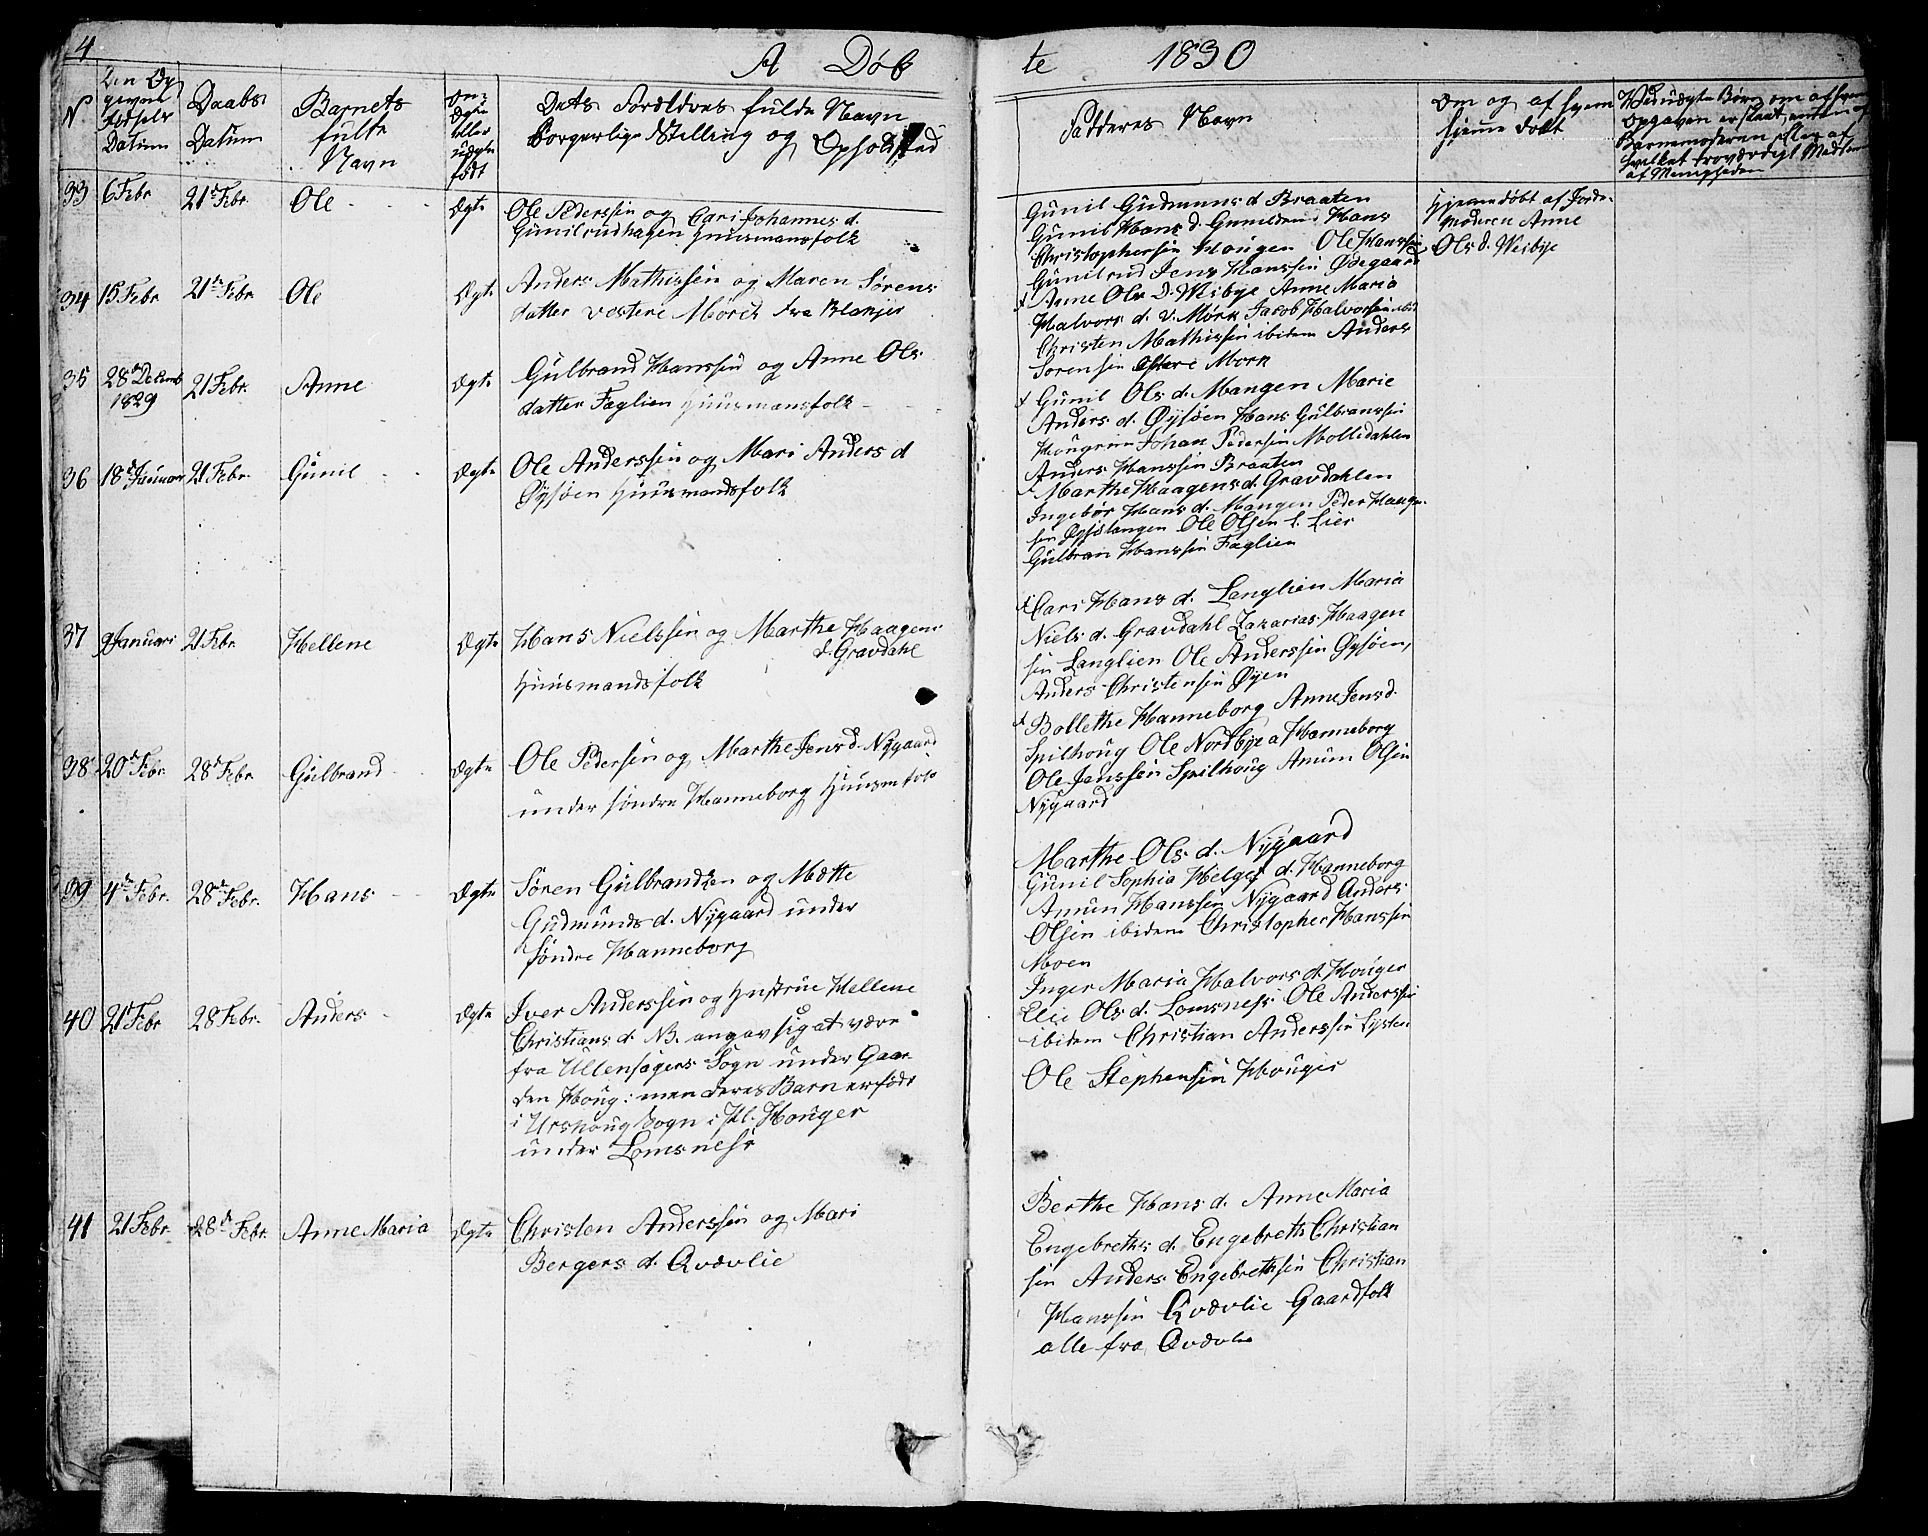 4
A Døb
te 1830
N
Den Op
given
Fødsels
Datum
Daabs
Datum
Barnets
fulde
Navn
Om
Ægte
eller
uægte
født
Dets Forældres fulde Navn
Borgerlige Stilling og Opholdsted
Fadderes Navn
Om og af hvem
hjemme døbt
Ved uægte Børn om af hvem
Opgaven er skeet, enten af
Barnemoderen eller af
hvilket troværdigt Medlem
af Menigheden
33 6 Febr 21de Febr. Ole Ægte Ole Pederssen og Cari Johannes d.
Gunilrudhagen Huusmansfolk
Gunil Gudmuns d Braaten
Gunil Hans d. Gunilrud Hans
Christophersen Hougen Ole Hanssen
Gunilrud Jens Hanssen Ødegaard
Hjemmedøbt af Jorde-
moderen Anne
Ols d. Weibye
34 15 Febr 21de Febr. Ole Ægte Anders Mathissen og Maren Sørens
datter vestere Mørch fra Blakjer
Anne Ols D. Weibye Anne Maria
Halvors d. v. Mørk Jacob Halvorsen ibid
Christen Mathissen ibidem Anders
Sørensen østere Mørk
35 28de Decemb 1829 21 Febr. Anne Ægte Gulbrand Hanssen og Anne Ols
datter Faglien Huusmansfolk
Gunil Ols d. Mangen Marie
Anders d. Øysøen Hans Gulbranssen
Hougrim Johan Pedersen Mollidahlen
Anders Hanssen Braaten
36 18de Januar 21 Febr. Gunil Ægte Ole Anderssen og Mari Anders d
Øysøen Huusmandsfolk
Marthe Haagens d. Gravdahlen
Ingebør Hans d. Mangen Peder Haagen-
sen Ole Olsen l. Lier
Gulbran Hanssen Faglien
37 9 Januari 21 Febr. Hellene Ægte Hans Nielssen og Marthe Haagens
d. Gravdahl
Huusmandsfolk
Cari Hans d. Langlien Maria
Niels d. Gravdahl Zakarias Haagen
sen Langlien Ole Anderssen Øysøen,
Anders Christensen Øyen
38 20de Febr. 28de Febr Gulbrand Ægte Ole Pedersen og Marthe Jens d. Nygaard
under søndre Hanneborg Huusmfolk
Bollethe Hanneborg Anne Jens d.
Spilhoug Ole Nordbye a Hanneborg
Ole Jenssen Spilhoug Amun Olsen
Nygaard
39 4de Febr. 28de Febr. Hans Ægte Søren Gulbrandsen og Mette
Gudmunds d. Nygaard under
søndre Hanneborg
Marthe Ols d. Nygaard
Gunil Sophia Helges d. Hanneborg
Amun Hanssen Nygaard Anders
Olsen ibidem Christopher Hanssen
Moen
40 21de Febr 28 Febr. Anders Ægte Iver Anderssen og Hustrue Hellene
Christians d. NB. angav sig at være
fra Ullensagers Sogn under Gaar-
den Houg: men deres Barn er født
i Urskoug Sogn i Pl. Houger
under Lomsness
Inger Maria Halvors d. Houger
Elie Ols d. Lomsness Ole Anderssen
ibidem Christian Anderssen Lysten
Ole Stephenssen Houger
41 21 Febr. 28de Febr. Anne Maria Ægte Christen Anderssen og Mari
Bergers d. Qvævlie
Berthe Hans d. Anne Maria
Engebreths d. Engebreth Christian
sen Anders Engebrethsen Christian
Hanssen Qvævlie Gaardfolk
alle fra Qvævlie